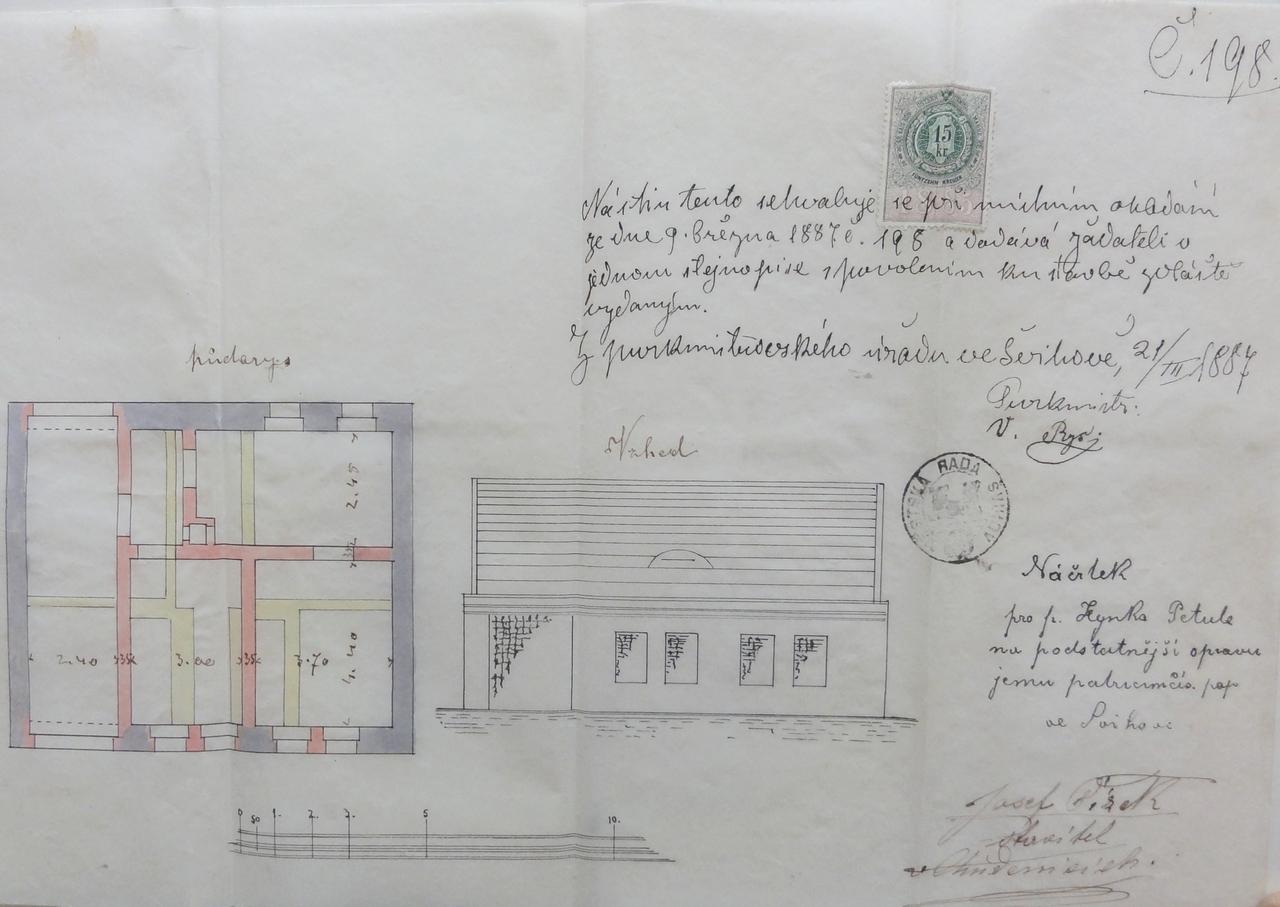 Č. 198.
15
kr
FÜNFZEHN KREUZER
Nástin tento schvaluje se při místním ohledání
ze dne 9. března 1887 č. 198 a dodává žadateli v
jednom stejnopise s povolením ku stavbě zvláště
vydaným.
Z purkmistrovského úřadu ve Švihově, 21/III 1887
Purkmistr:
V.
půdorys
Vzhled
RADA
2.45
35
2.40
35
3.00
35
3.70
4.40
Náčrtek
pro p. Hynka Petule
na podstatnější opravu
jemu patřící
ve Švihově
0
50
1.
2.
3.
5
10.
Josef
stavitel
v Chudenicích.